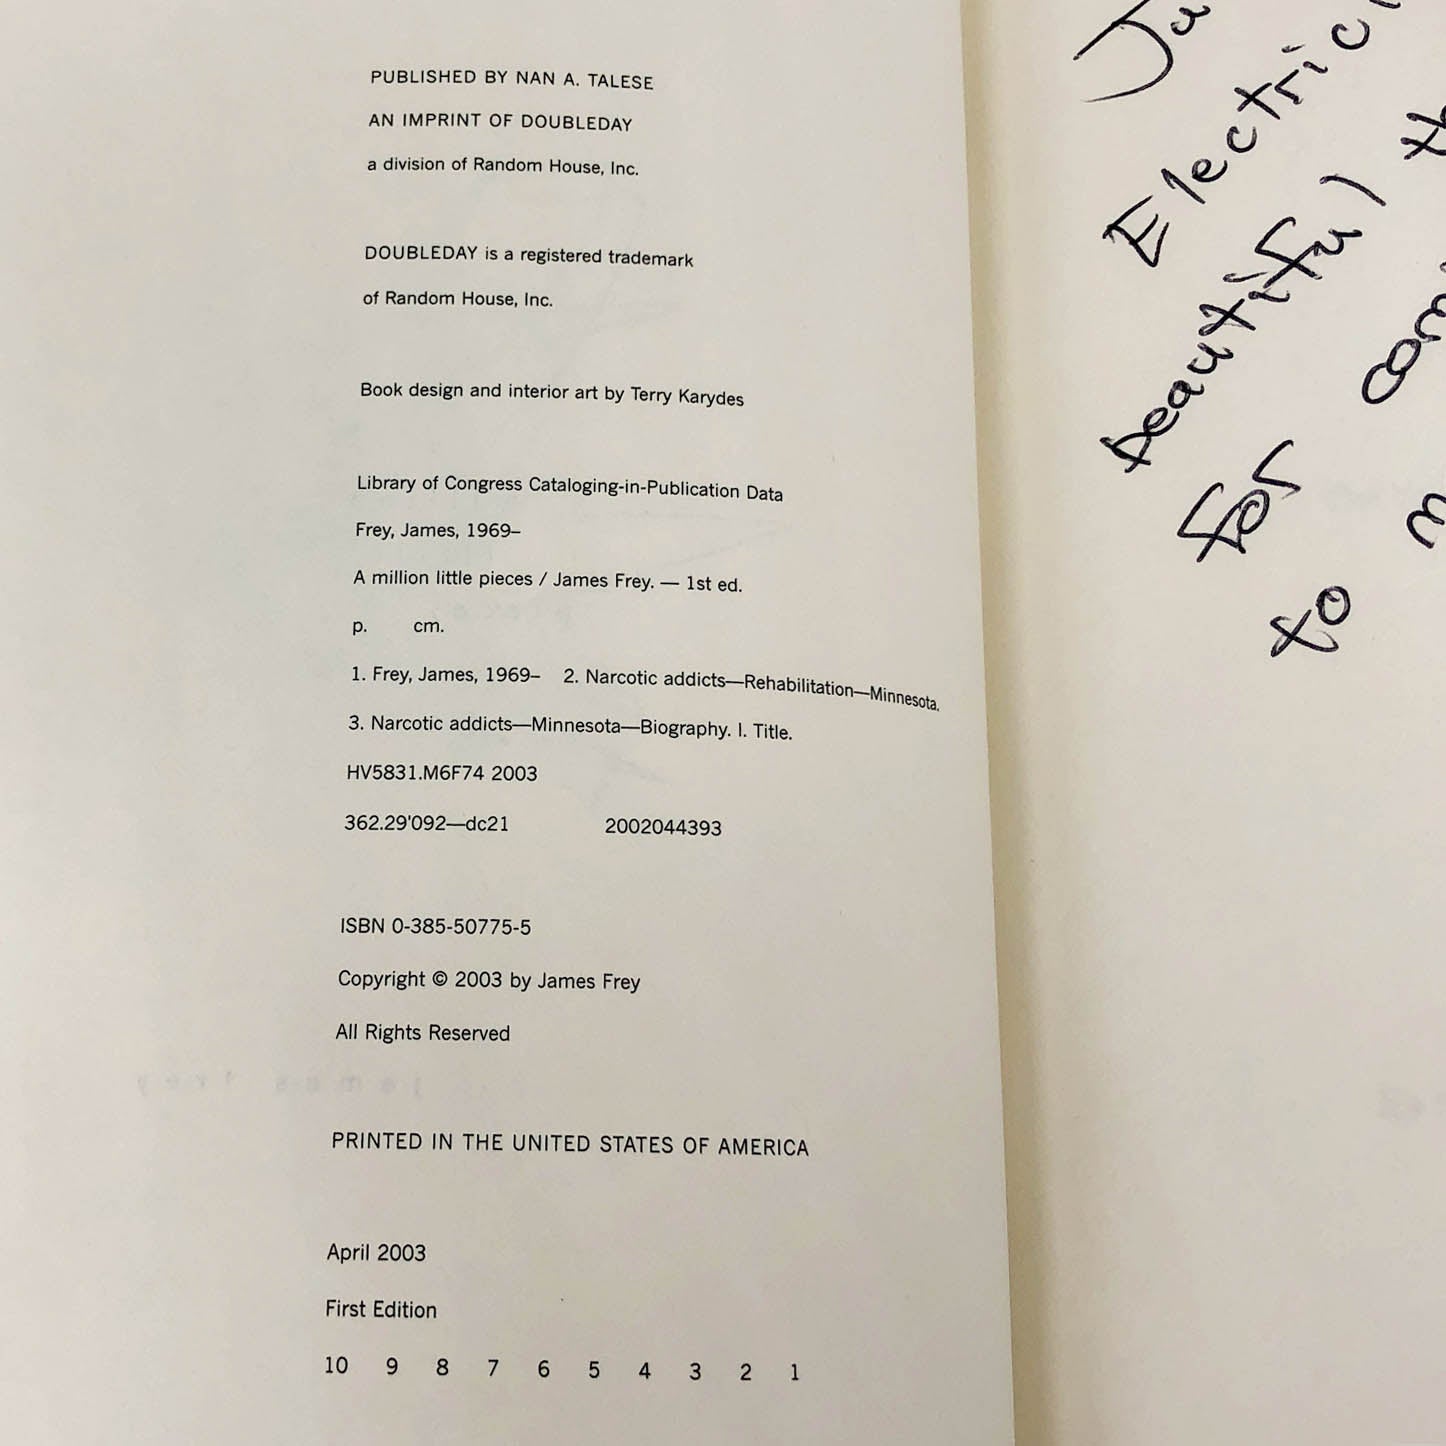 PUBLISHED BY NAN A. TALESE
AN IMPRINT OF DOUBLEDAY
a division of Random House, Inc.
DOUBLEDAY is a registered trademark
of Random House, Inc.
Book design and interior art by Terry Karydes
Library of Congress Cataloging-in-Publication Data
Frey, James, 1969–
A million little pieces / James Frey. — 1st ed.
p. cm.
1. Frey, James, 1969– 2. Narcotic addicts—Rehabilitation—Minnesota.
3. Narcotic addicts—Minnesota—Biography. I. Title.
HV5831.M6F74 2003
362.29'092—dc21 2002044393
ISBN 0-385-50775-5
Copyright © 2003 by James Frey
All Rights Reserved
PRINTED IN THE UNITED STATES OF AMERICA
April 2003
First Edition
10 9 8 7 6 5 4 3 2 1
beautiful
for
to